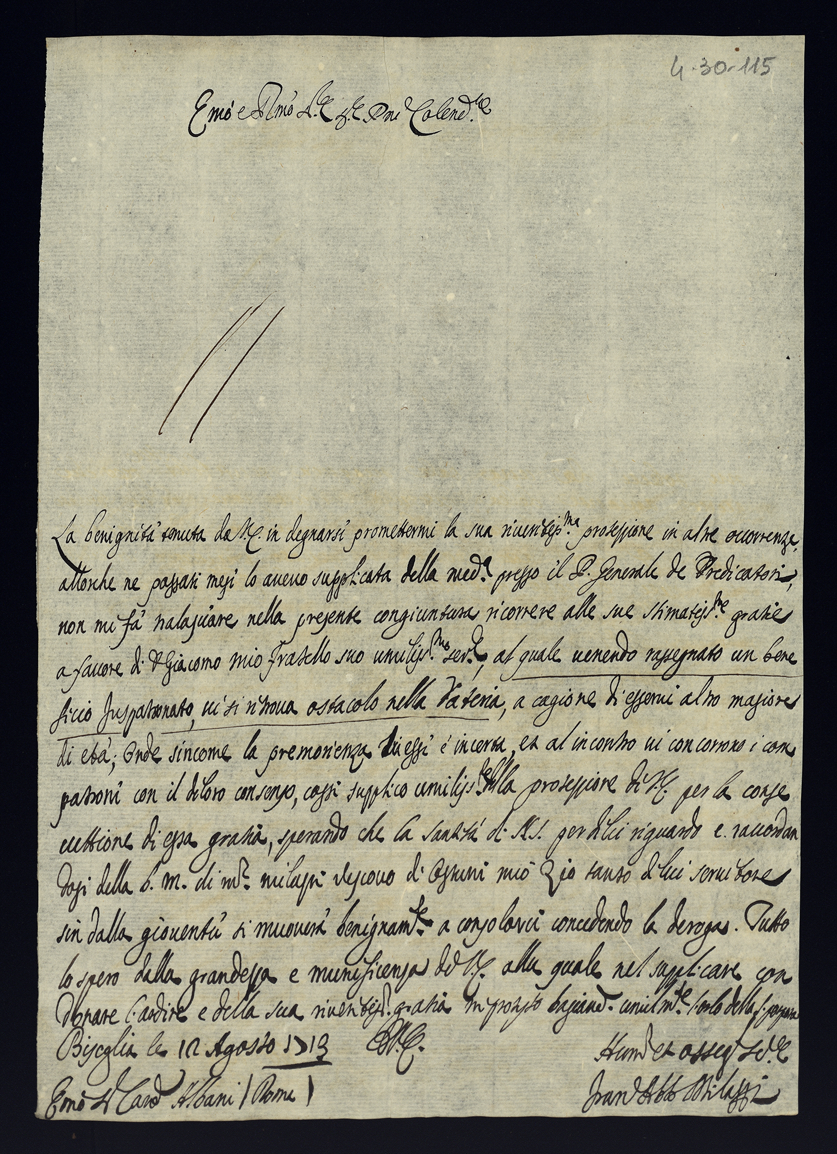 4-30-115
Emo e Rmo Sr. Sr. Pne Colendmo
La benignità tenuta da V.E. in degnarsi promettermi la sua riveritissma protezzione in altre occorrenze,
allorche ne passati mesi lo avevo supplicata della meda presso il P. Generale de Predicatori,
non mi fà tralasciare nella presente congiuntura ricorrere alle sue stimatissme gratie
a favore di Giacomo mio Fratello suo umilissmo serre, al quale venendo rassegnato un bene
ficio Juspatronato, vi si ritrova ostacolo nella Dateria, a cagione di esservi altro magiore
di età; Onde sincome la premorienza di essi è incerta, et al incontro vi concorrono i con
patroni con il di loro consenso, cossì supplico umilisste della protezzione di V.E. per la conse
cuttione di essa gratia, sperando che la santità di N.S. per di lei riguardo e raccordan
dosi della b. m. di mr. milazzi vescovo di Ostuni mio Zio tanto di lei servitore
sin dalla gioventù si muoverà benignamte a consolarci concedendo la deroga. Tutto
lo spero dalla grandezza e munificenza di V.E. alla quale nel supplicare con
donare l'ardire e della sua riveritissa gratia m protesto baciando umilmte l'orlo della s. porpora
Bisceglia le 12 Agosto 1713 D.V.E.
Humo et ossequ Sere
Emo Sr Card Albani (Roma) Frano Abb Milazzi